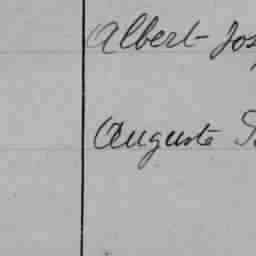 Albert Jos
Auguste